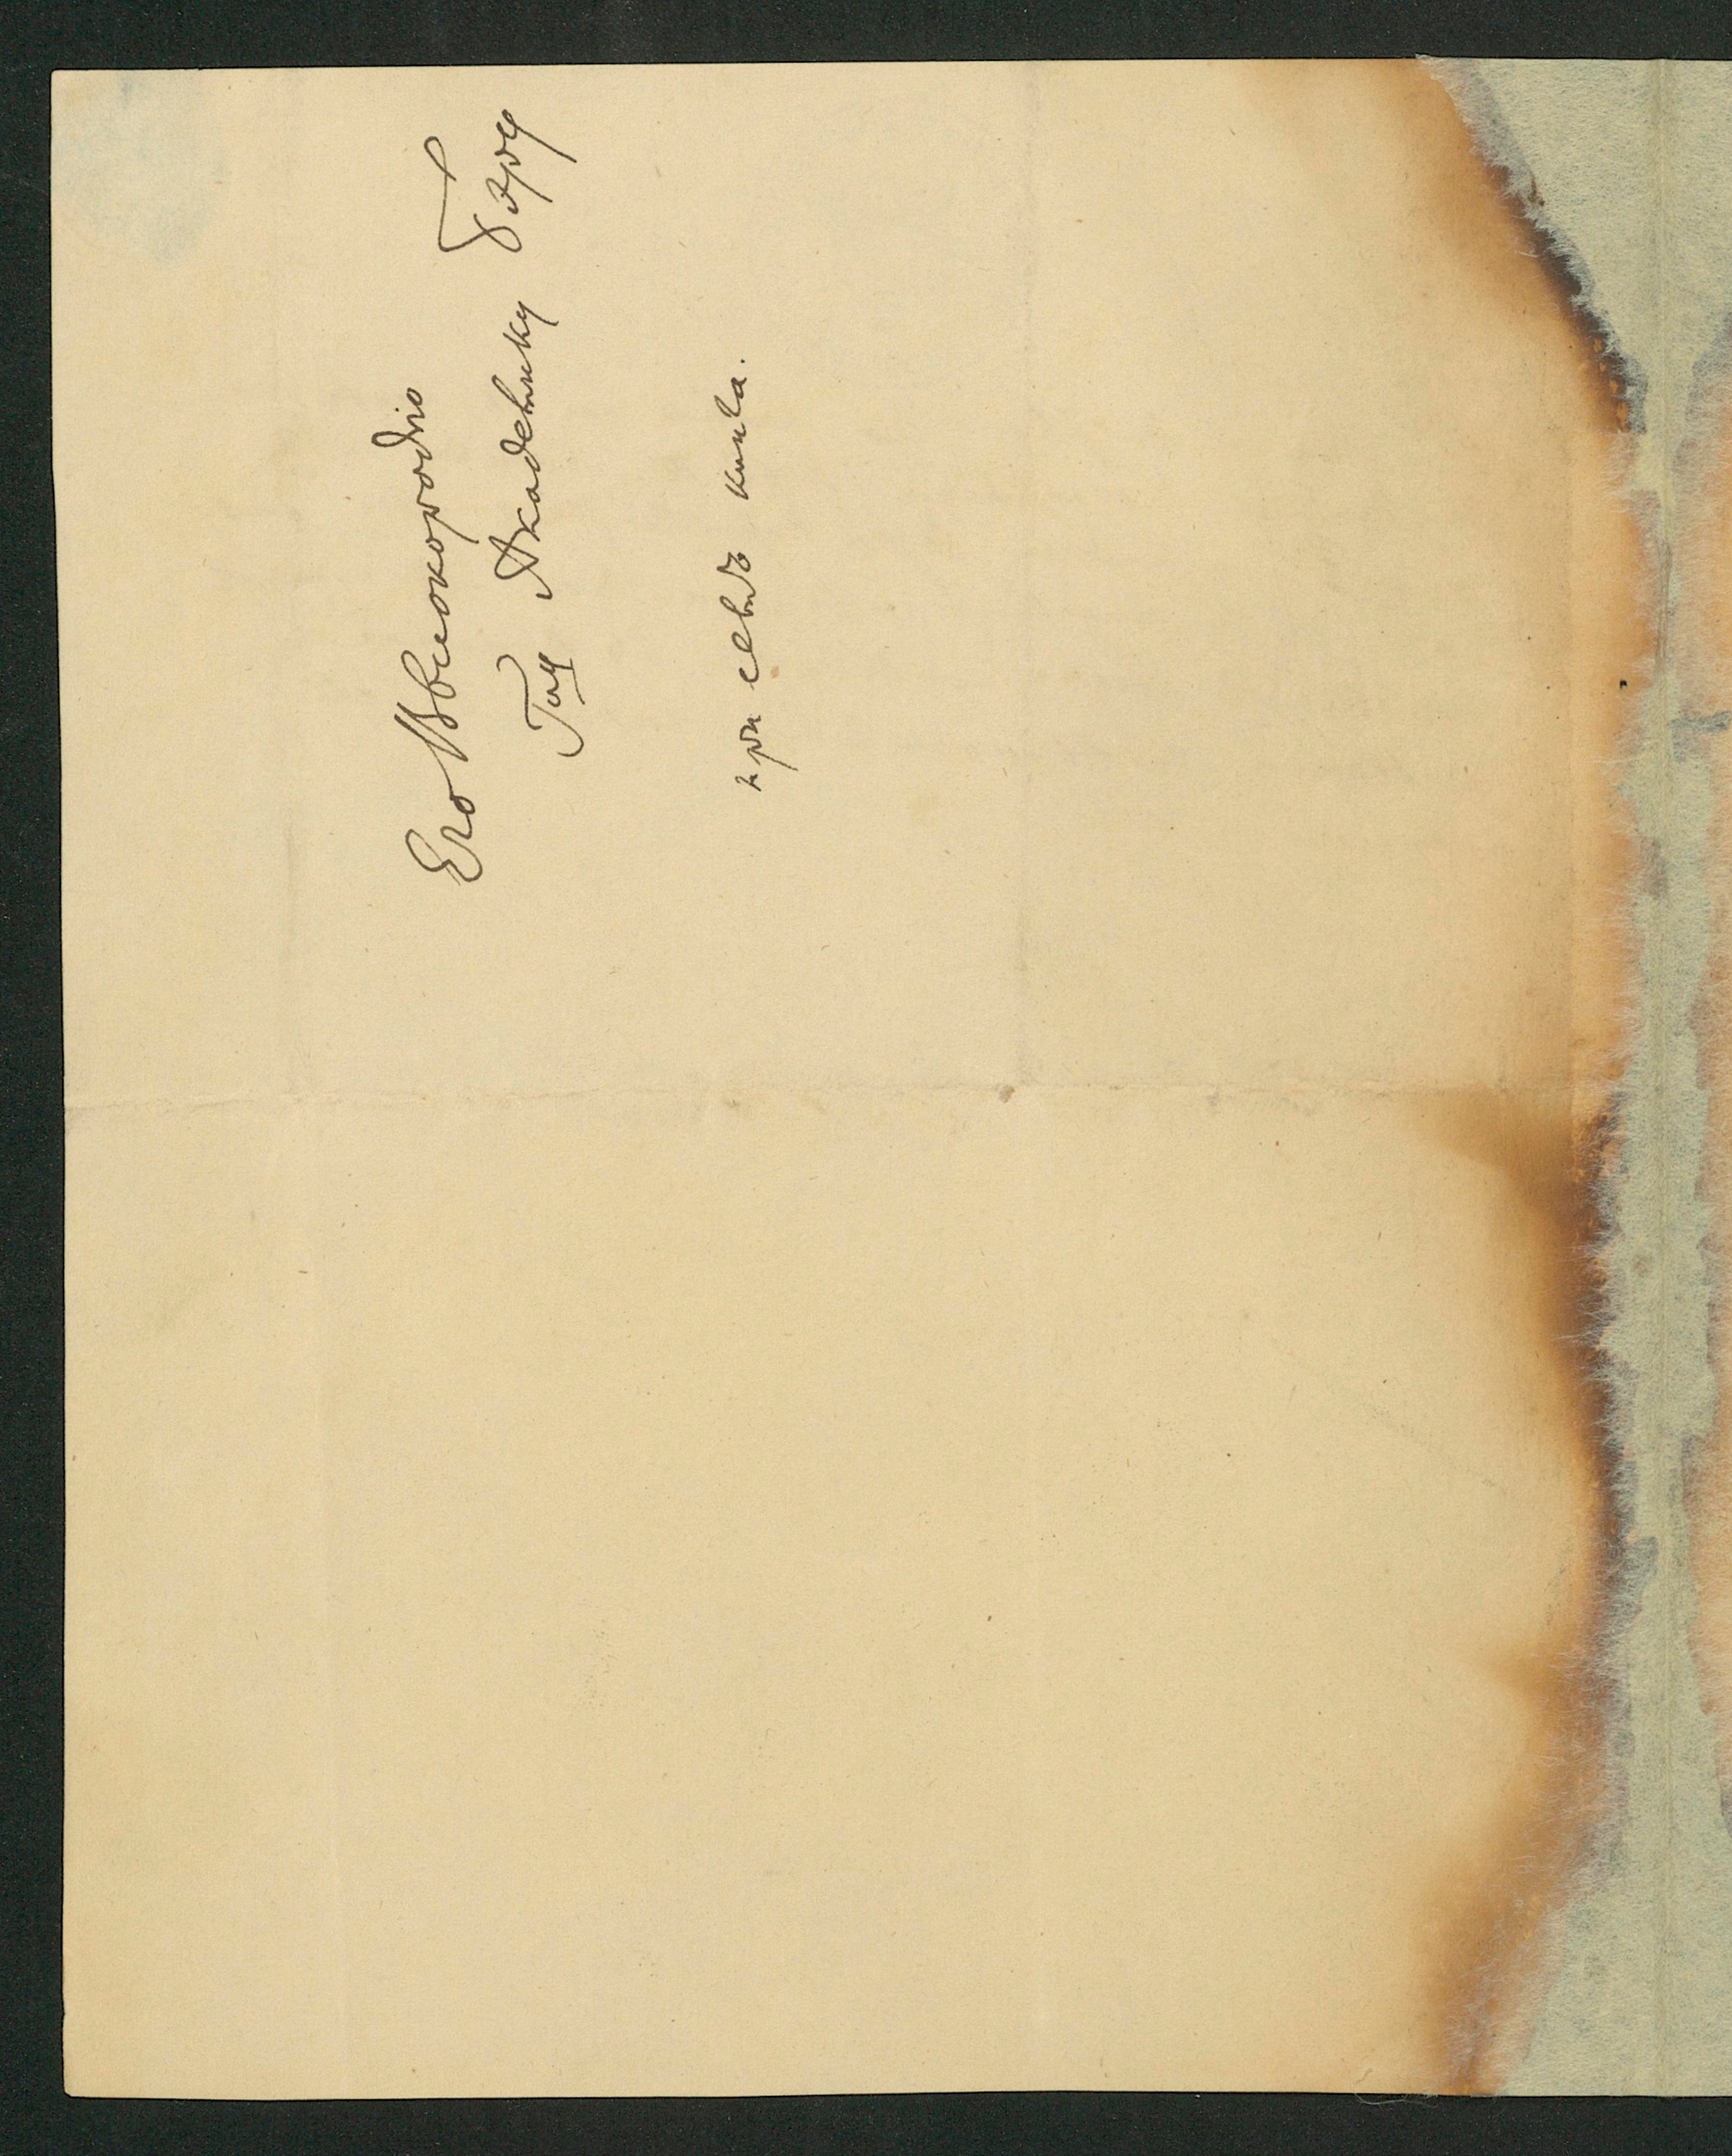 Его Высокородію
Гну Академику Бэру
при семъ книга.